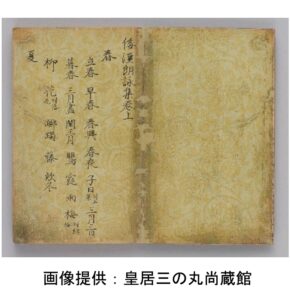 倭漢朗詠集巻上
春
立春 早春 春興 春夜 子日 三月三日
暮春 三月盡 閏三月 鶯 霞 雨 梅
柳 花 躑躅 藤 款冬
夏
画像提供：皇居三の丸尚蔵館